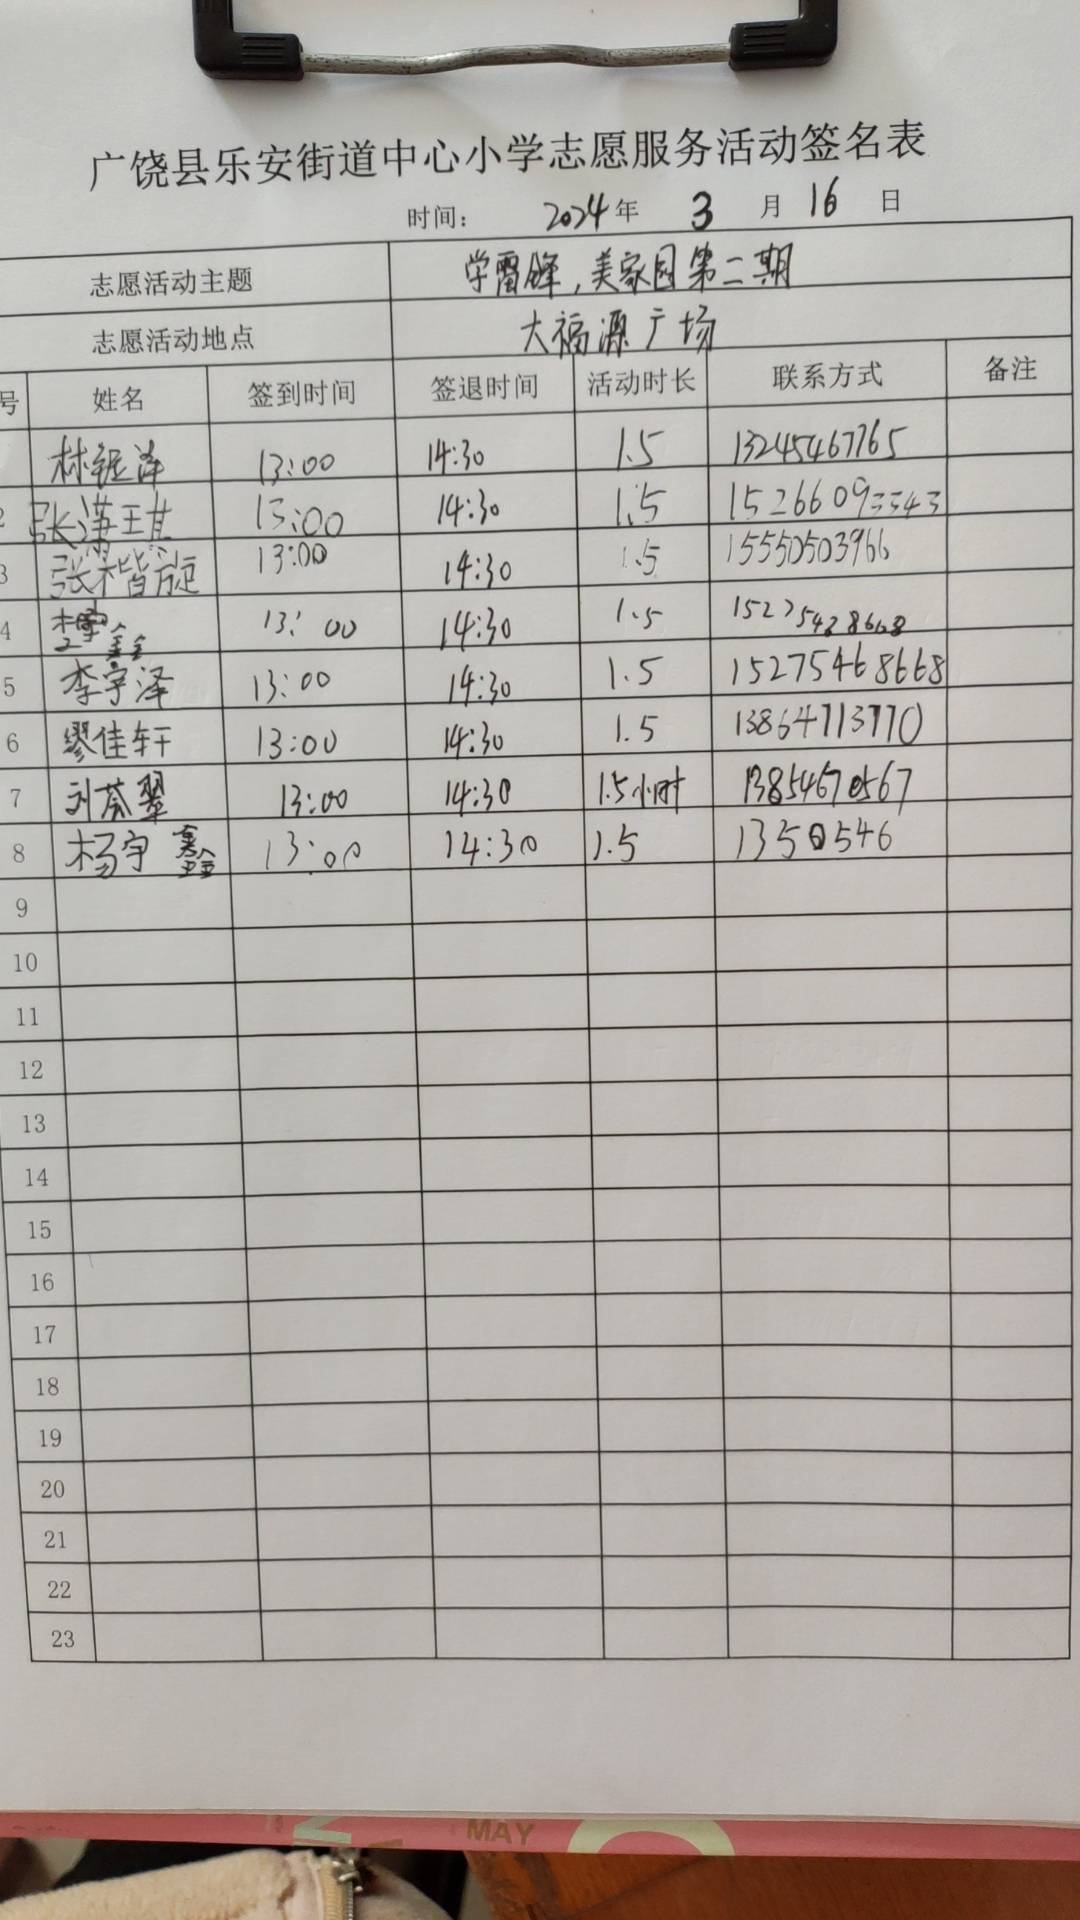 广饶县乐安街道中心小学志愿服务活动签名表
时间： 2024 年 3 月 16 日
志愿活动主题 学雷锋，美家园第二期
志愿活动地点 大福源广场
号 姓名 签到时间 签退时间 活动时长 联系方式 备注
林铤泽 13:00 14:30 1.5 13245467765
2 张潇 13:00 14:30 1.5 15266093343
3 张楷旋 13:00 14:30 1.5 15550503966
4 鑫 13:00 14:30 1.5 15275468668
5 李宇泽 13:00 14:30 1.5 15275468668
6 缪佳轩 13:00 14:30 1.5 13864713770
7 刘荟翠 13:00 14:30 1.5小时 13854670567
8 杨宇鑫 13:00 14:30 1.5 1350546
9
10
11
12
13
14
15
16
17
18
19
20
21
22
23
MAY